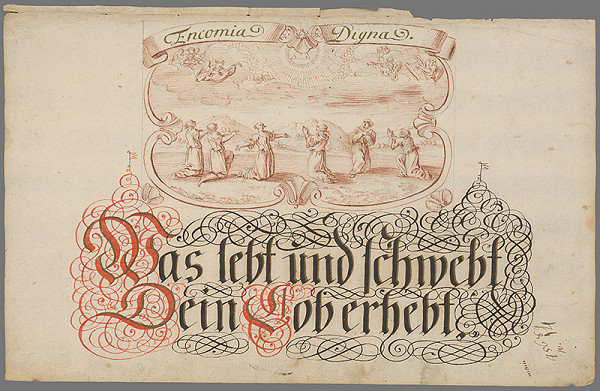 Encomia Digna.
Was lebt und schwebt
Dein Lob erhebt.